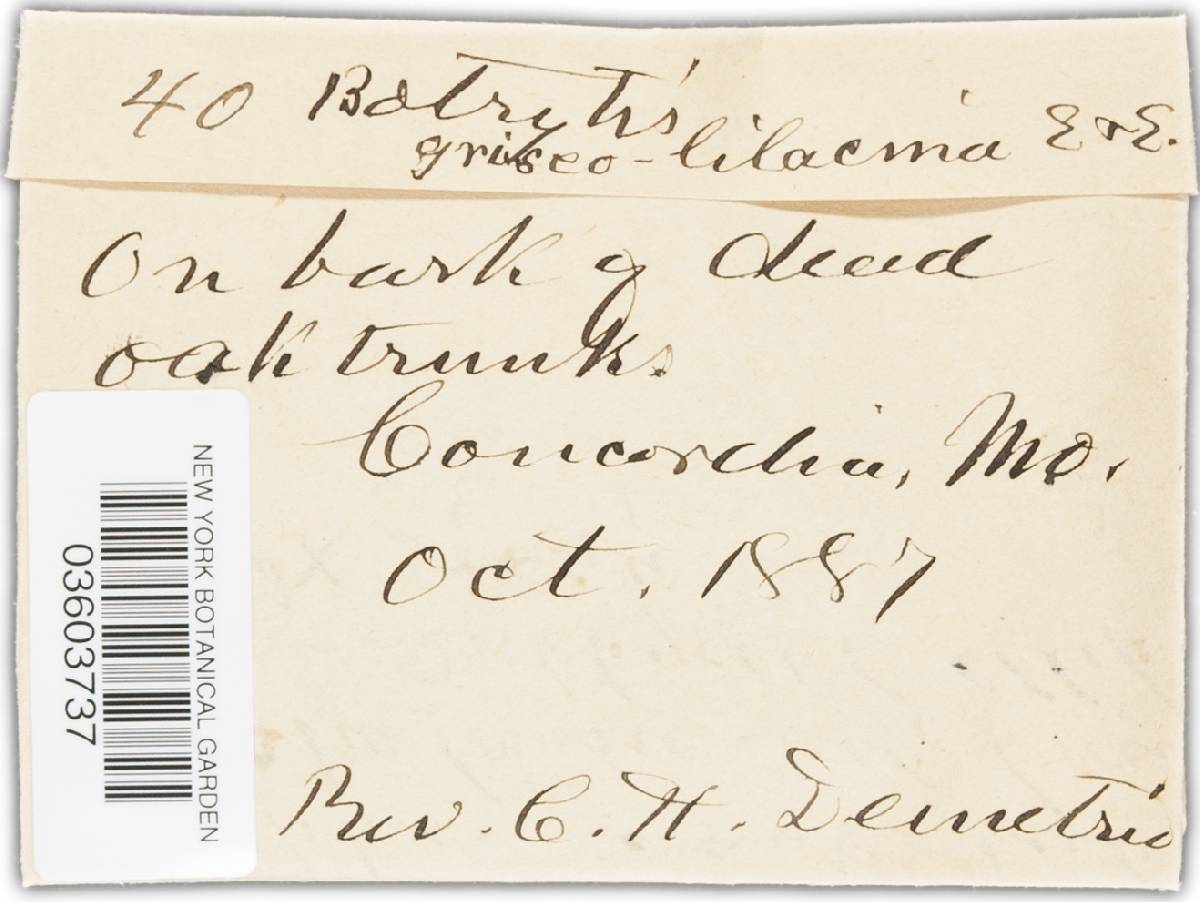 40 Botrytis
griseo-lilacina E & E.
On bark of dead
oak trunks.
Concordia, Mo.
Oct. 1887
Rev. C. H. Demetrio
NEW YORK BOTANICAL GARDEN
03603737